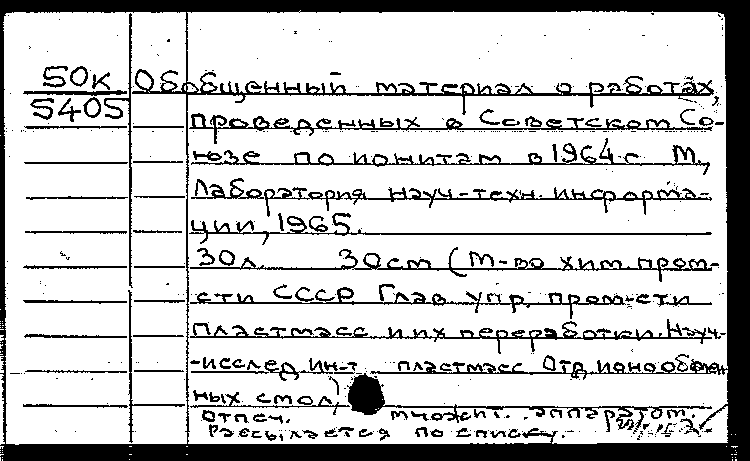 50к Обобщенный материал о работах,
5405
проведенных в Советском Со-
юзе по ионитам в 1964 г М.,
Лаборатория науч-техн. информа-
ции, 1965.
30л. 30см (М-во хим. пром-
сти СССР. Глав упр. пром-сти
пластмасс и их переработки. Науч.-
-исслед. ин-т пластмасс Отд ионообмен
ных смол)
Отпеч. множит. аппаратом.
Рассылается по списку.